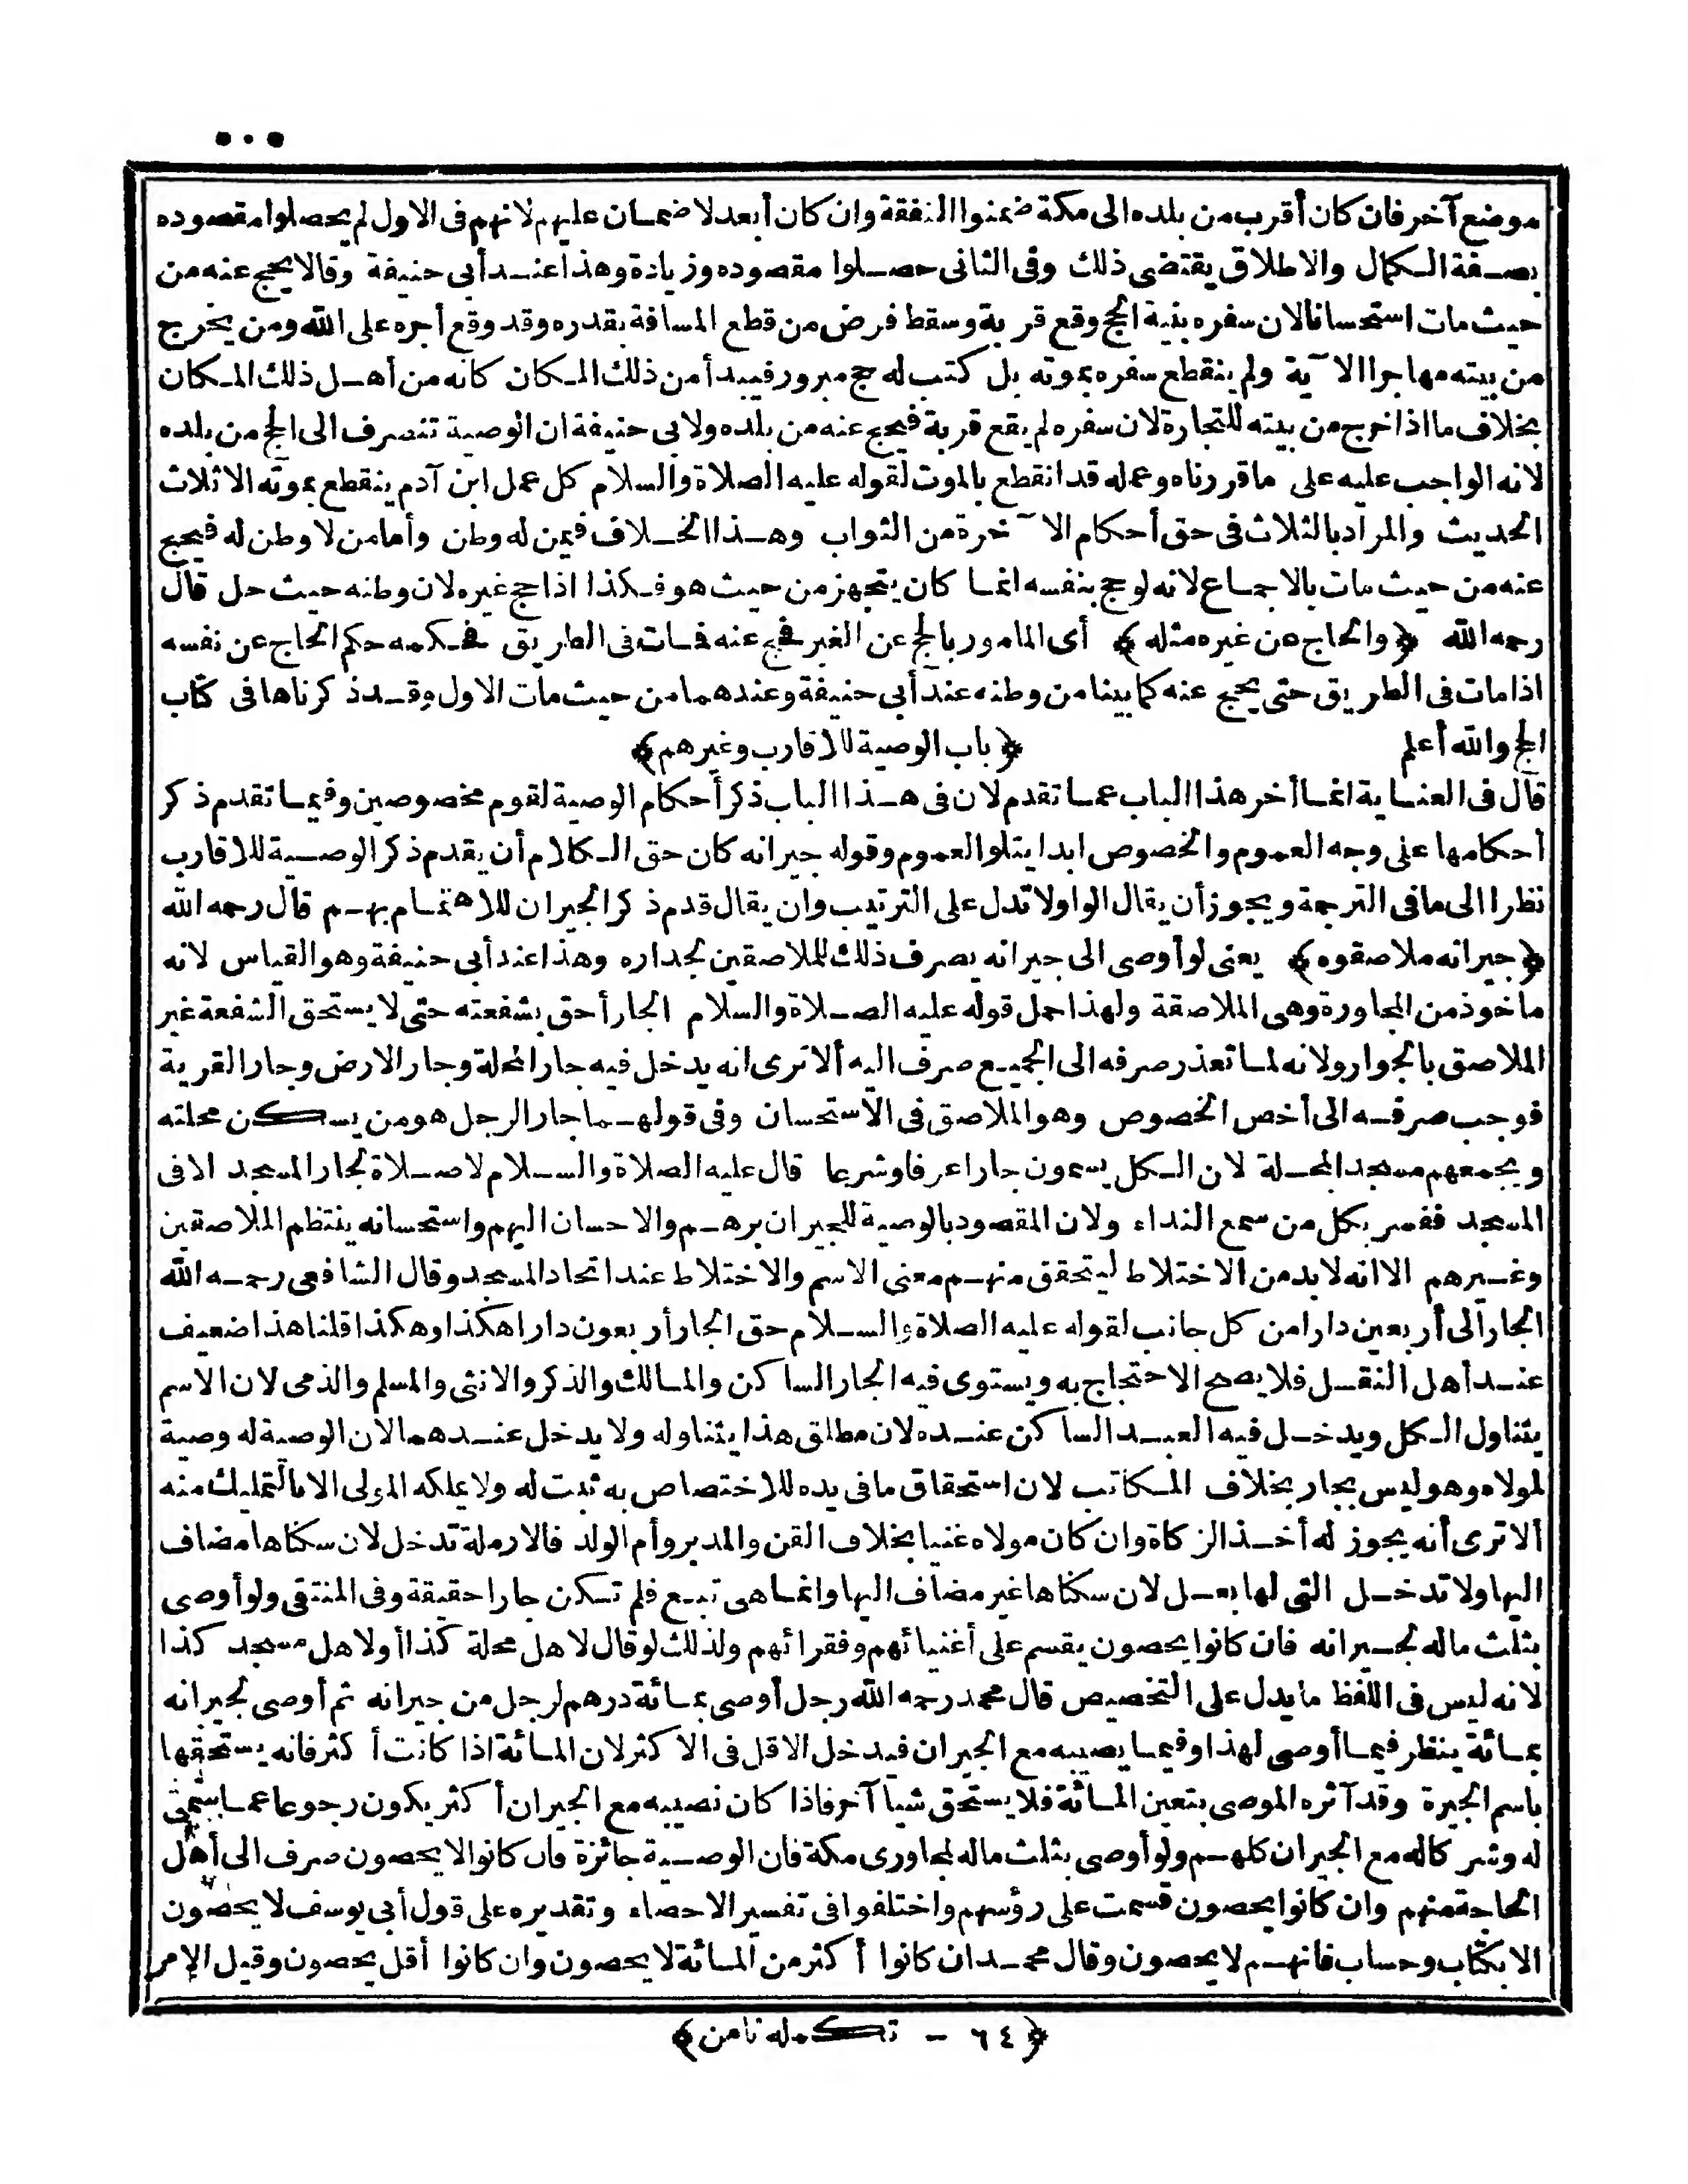 ٥٠٥
موضع آخر فان كان أقرب من بلده الى مكة ضمنوا النفقة وان كان أبعد لا ضمان عليهم لانهم فى الاول لم يحصلوا مقصوده
بصفة الكمال والاطلاق يقتضى ذلك وفى الثانى حصلوا مقصوده وزيادة وهذا عند أبى حنيفة وقالا يحج عنه من
حيث مات استحسانا لان سفره بنية الحج وقع قربة وسقط فرض من قطع المسافة بقدره وقد وقع أجره على الله ومن يخرج
من بيته مهاجرا الآية ولم ينقطع سفره بموته بل كتب له حج مبرور فيبدأ من ذلك المكان كانه من أهل ذلك المكان
بخلاف ما اذا خرج من بيته للتجارة لان سفره لم يقع قربة فيحج عنه من بلده ولابى حنيفة ان الوصية تنصرف الى الحج من بلده
لانه الواجب عليه على ما قررناه وعمله قد انقطع بالموت لقوله عليه الصلاة والسلام كل عمل ابن آدم ينقطع بموته الا ثلاث
الحديث والمراد بالثلاث فى حق أحكام الآخرة من الثواب وهذا الخلاف فيمن له وطن وأما من لا وطن له فيحج
عنه من حيث مات بالاجماع لانه لو حج بنفسه انما كان يتجهز من حيث هو فكذا اذا حج غيره لان وطنه حيث حل قال
رحمه الله ﴿والحاج عن غيره مثله﴾ أى المامور بالحج عن الغير فحج عنه فمات فى الطريق فحكمه حكم الحاج عن نفسه
اذا مات فى الطريق حتى يحج عنه كما بينا من وطنه عند أبى حنيفة وعندهما من حيث مات الاول وقد ذكرناها فى كتاب
الحج والله أعلم ﴿باب الوصية للاقارب وغيرهم﴾
قال فى العناية انما أخر هذا الباب عما تقدم لان فى هذا الباب ذكر أحكام الوصية لقوم مخصوصين وفيما تقدم ذكر
أحكامها على وجه العموم والخصوص ابدا يتلو العموم وقوله جيرانه كان حق الكلام أن يقدم ذكر الوصية للاقارب
نظرا الى ما فى الترجمة ويجوز أن يقال الواو لا تدل على الترتيب وان يقال قدم ذكر الجيران للاهتمام بهم قال رحمه الله
﴿جيرانه ملاصقوه﴾ يعنى لو أوصى الى جيرانه يصرف ذلك للملاصقين لجداره وهذا عند أبى حنيفة وهو القياس لانه
ماخوذ من المجاورة وهى الملاصقة ولهذا حمل قوله عليه الصلاة والسلام الجار أحق بشفعته حتى لا يستحق الشفعة غير
الملاصق بالجوار ولانه لما تعذر صرفه الى الجميع صرف اليه ألا ترى انه يدخل فيه جار المحلة وجار الارض وجار القرية
فوجب صرفه الى أخص الخصوص وهو الملاصق فى الاستحسان وفى قولهما جار الرجل هو من يسكن محلته
ويجمعهم مسجد المحلة لان الكل يسمون جارا عرفا وشرعا قال عليه الصلاة والسلام لا صلاة لجار المسجد الا فى
المسجد ففسر بكل من سمع النداء ولان المقصود بالوصية للجيران برهم والاحسان اليهم واستحسانه ينتظم الملاصقين
وغيرهم الا انه لا بد من الاختلاط ليتحقق منهم معنى الاسم والاختلاط عند اتحاد المسجد وقال الشافعى رحمه الله
الجار الى أربعين دارا من كل جانب لقوله عليه الصلاة والسلام حق الجار أربعون دارا هكذا وهكذا قلنا هذا ضعيف
عند أهل النقل فلا يصح الاحتجاج به ويستوى فيه الجار الساكن والمالك والذكر والانثى والمسلم والذمى لان الاسم
يتناول الكل ويدخل فيه العبد الساكن عنده لان مطلق هذا يتناوله ولا يدخل عندهما لان الوصية له وصية
لمولاه وهو ليس بجار بخلاف المكاتب لان استحقاق ما فى يده للاختصاص به ثبت له ولا يملكه المولى الا بالتمليك منه
ألا ترى أنه يجوز له أخذ الزكاة وان كان مولاه غنيا بخلاف القن والمدبر وأم الولد فالارملة تدخل لان سكناها مضاف
اليها ولا تدخل التى لها بعل لان سكناها غير مضاف اليها وانما هى تبع فلم تكن جارا حقيقة وفى المنتقى ولو أوصى
بثلث ماله لجيرانه فان كانوا يحصون يقسم على أغنيائهم وفقرائهم ولذلك لو قال لاهل محلة كذا أو لاهل مسجد كذا
لانه ليس فى اللفظ ما يدل على التخصيص قال محمد رحمه الله رجل أوصى بمائة درهم لرجل من جيرانه ثم أوصى لجيرانه
بمائة ينظر فيما أوصى لهذا وفيما يصيبه مع الجيران فيدخل الاقل فى الاكثر لان المائة اذا كانت أكثر فانه يستحقها
باسم الجيرة وقد آثره الموصى بتعين المائة فلا يستحق شيا آخر فاذا كان نصيبه مع الجيران أكثر يكون رجوعا عما سمى
له وشركا له مع الجيران كلهم ولو أوصى بثلث ماله لمجاورى مكة فان الوصية جائزة فان كانوا لا يحصون صرف الى أهل
الحاجة منهم وان كانوا يحصون قسمت على رؤسهم واختلفوا فى تفسير الاحصاء وتقديره على قول أبى يوسف لا يحصون
الا بكتاب وحساب فانهم لا يحصون وقال محمد ان كانوا أكثر من المائة لا يحصون وان كانوا أقل يحصون وقيل الامر
﴿٦٤ - تكمله ثامن﴾